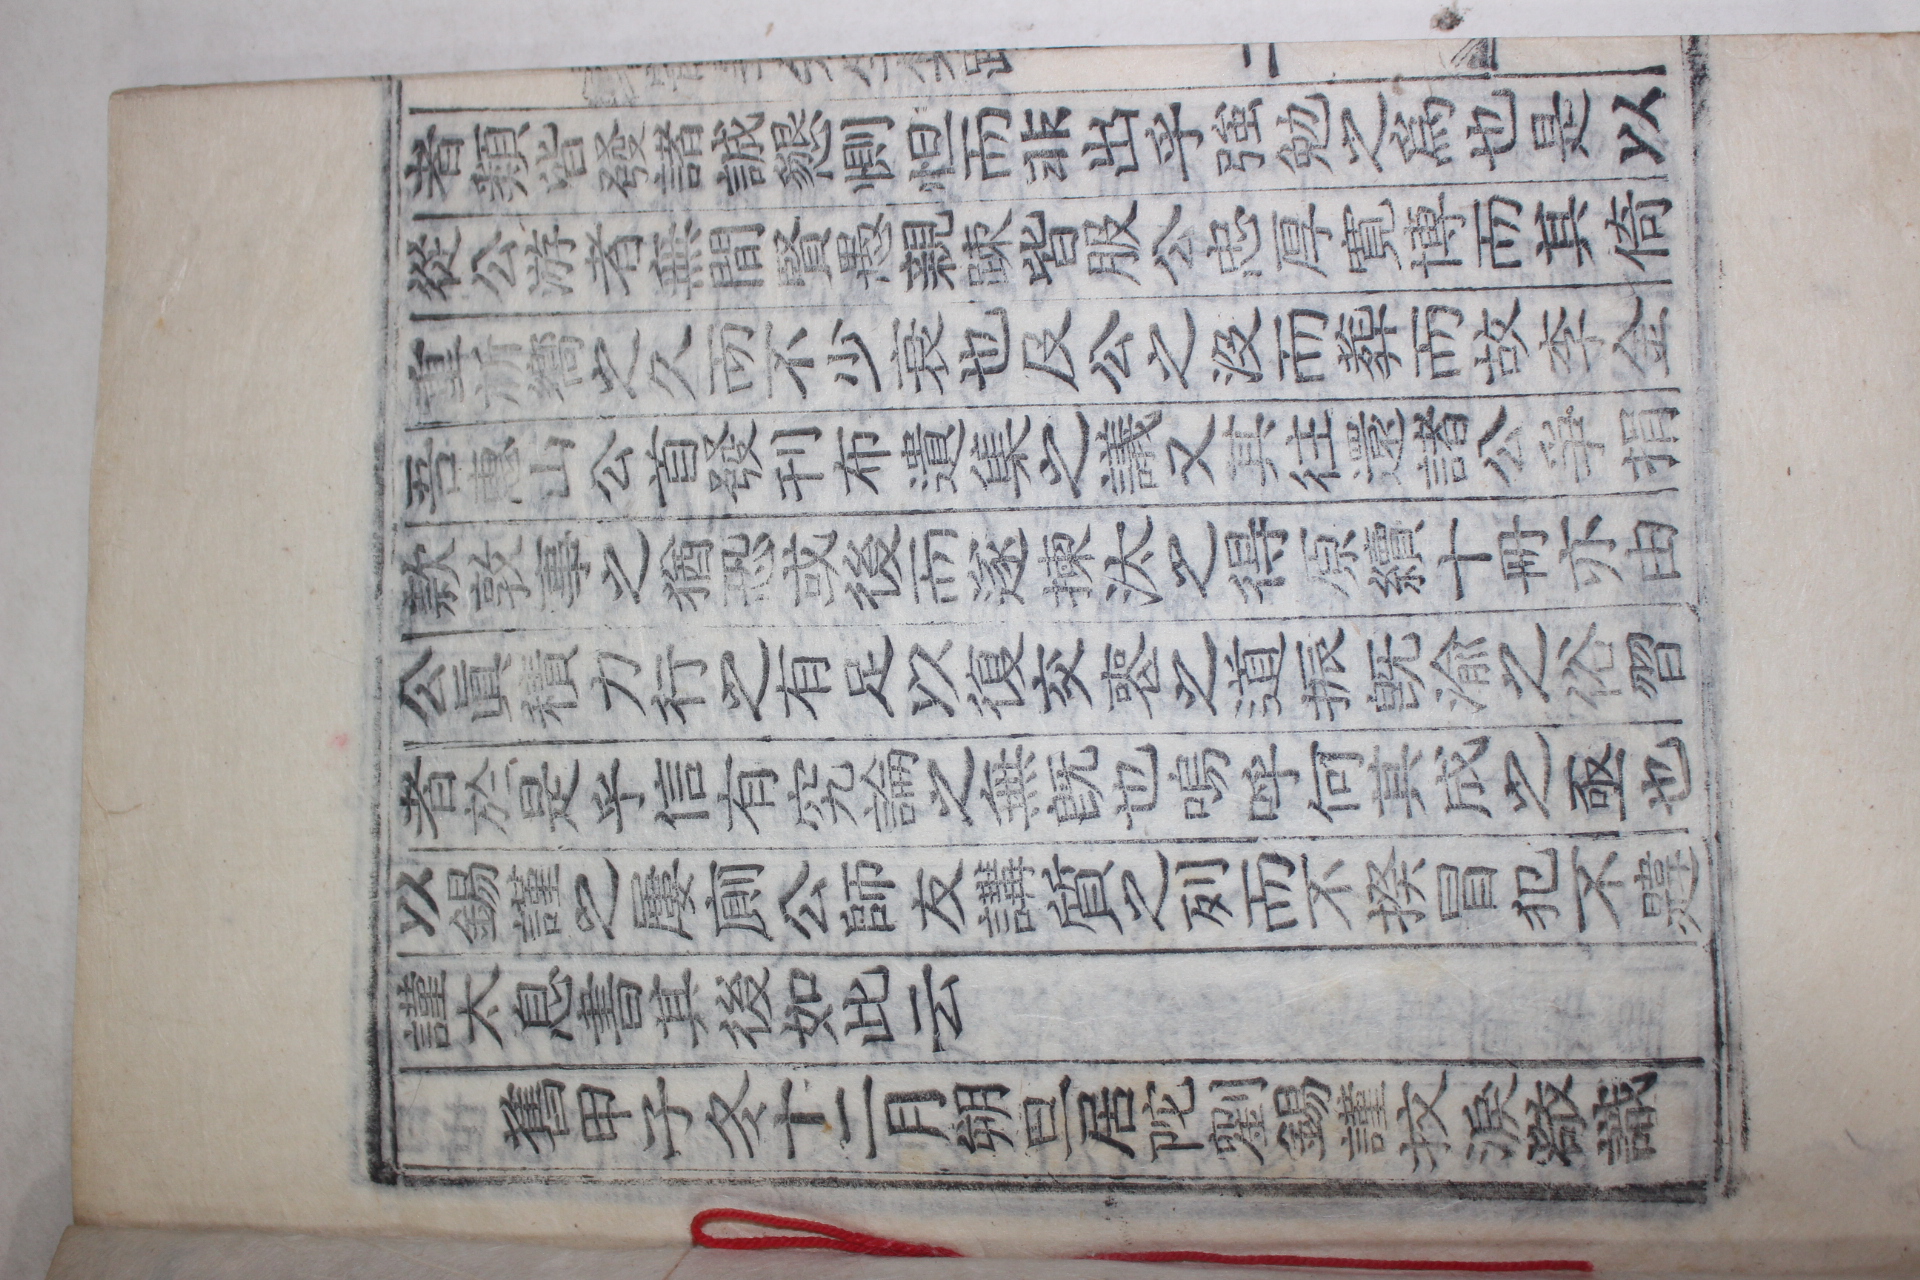 者類皆發諸誠懇惻怛而非出乎強勉之爲也是以
從公游者無間賢愚親踈皆服公忠厚寬博而其倚
重祈嚮之久而不少衰也及公之沒而葬而故李金
吾惠山公首發刊布遺集之議又其往還諸公爭捐
款敦事之猶恐或後而遂揀汰之得原續十冊亦由
公眞積力行之有足以復交喪之道振旣渝之俗習
者於是乎信有究論之無旣也嗚呼何其成之亟也
以錫謹之屢廁公師友講質之列而不揆冒犯不韙
謹太息書其後如此云
舊甲子冬十二月朔旦居陀劉錫謹抆淚敬識
二